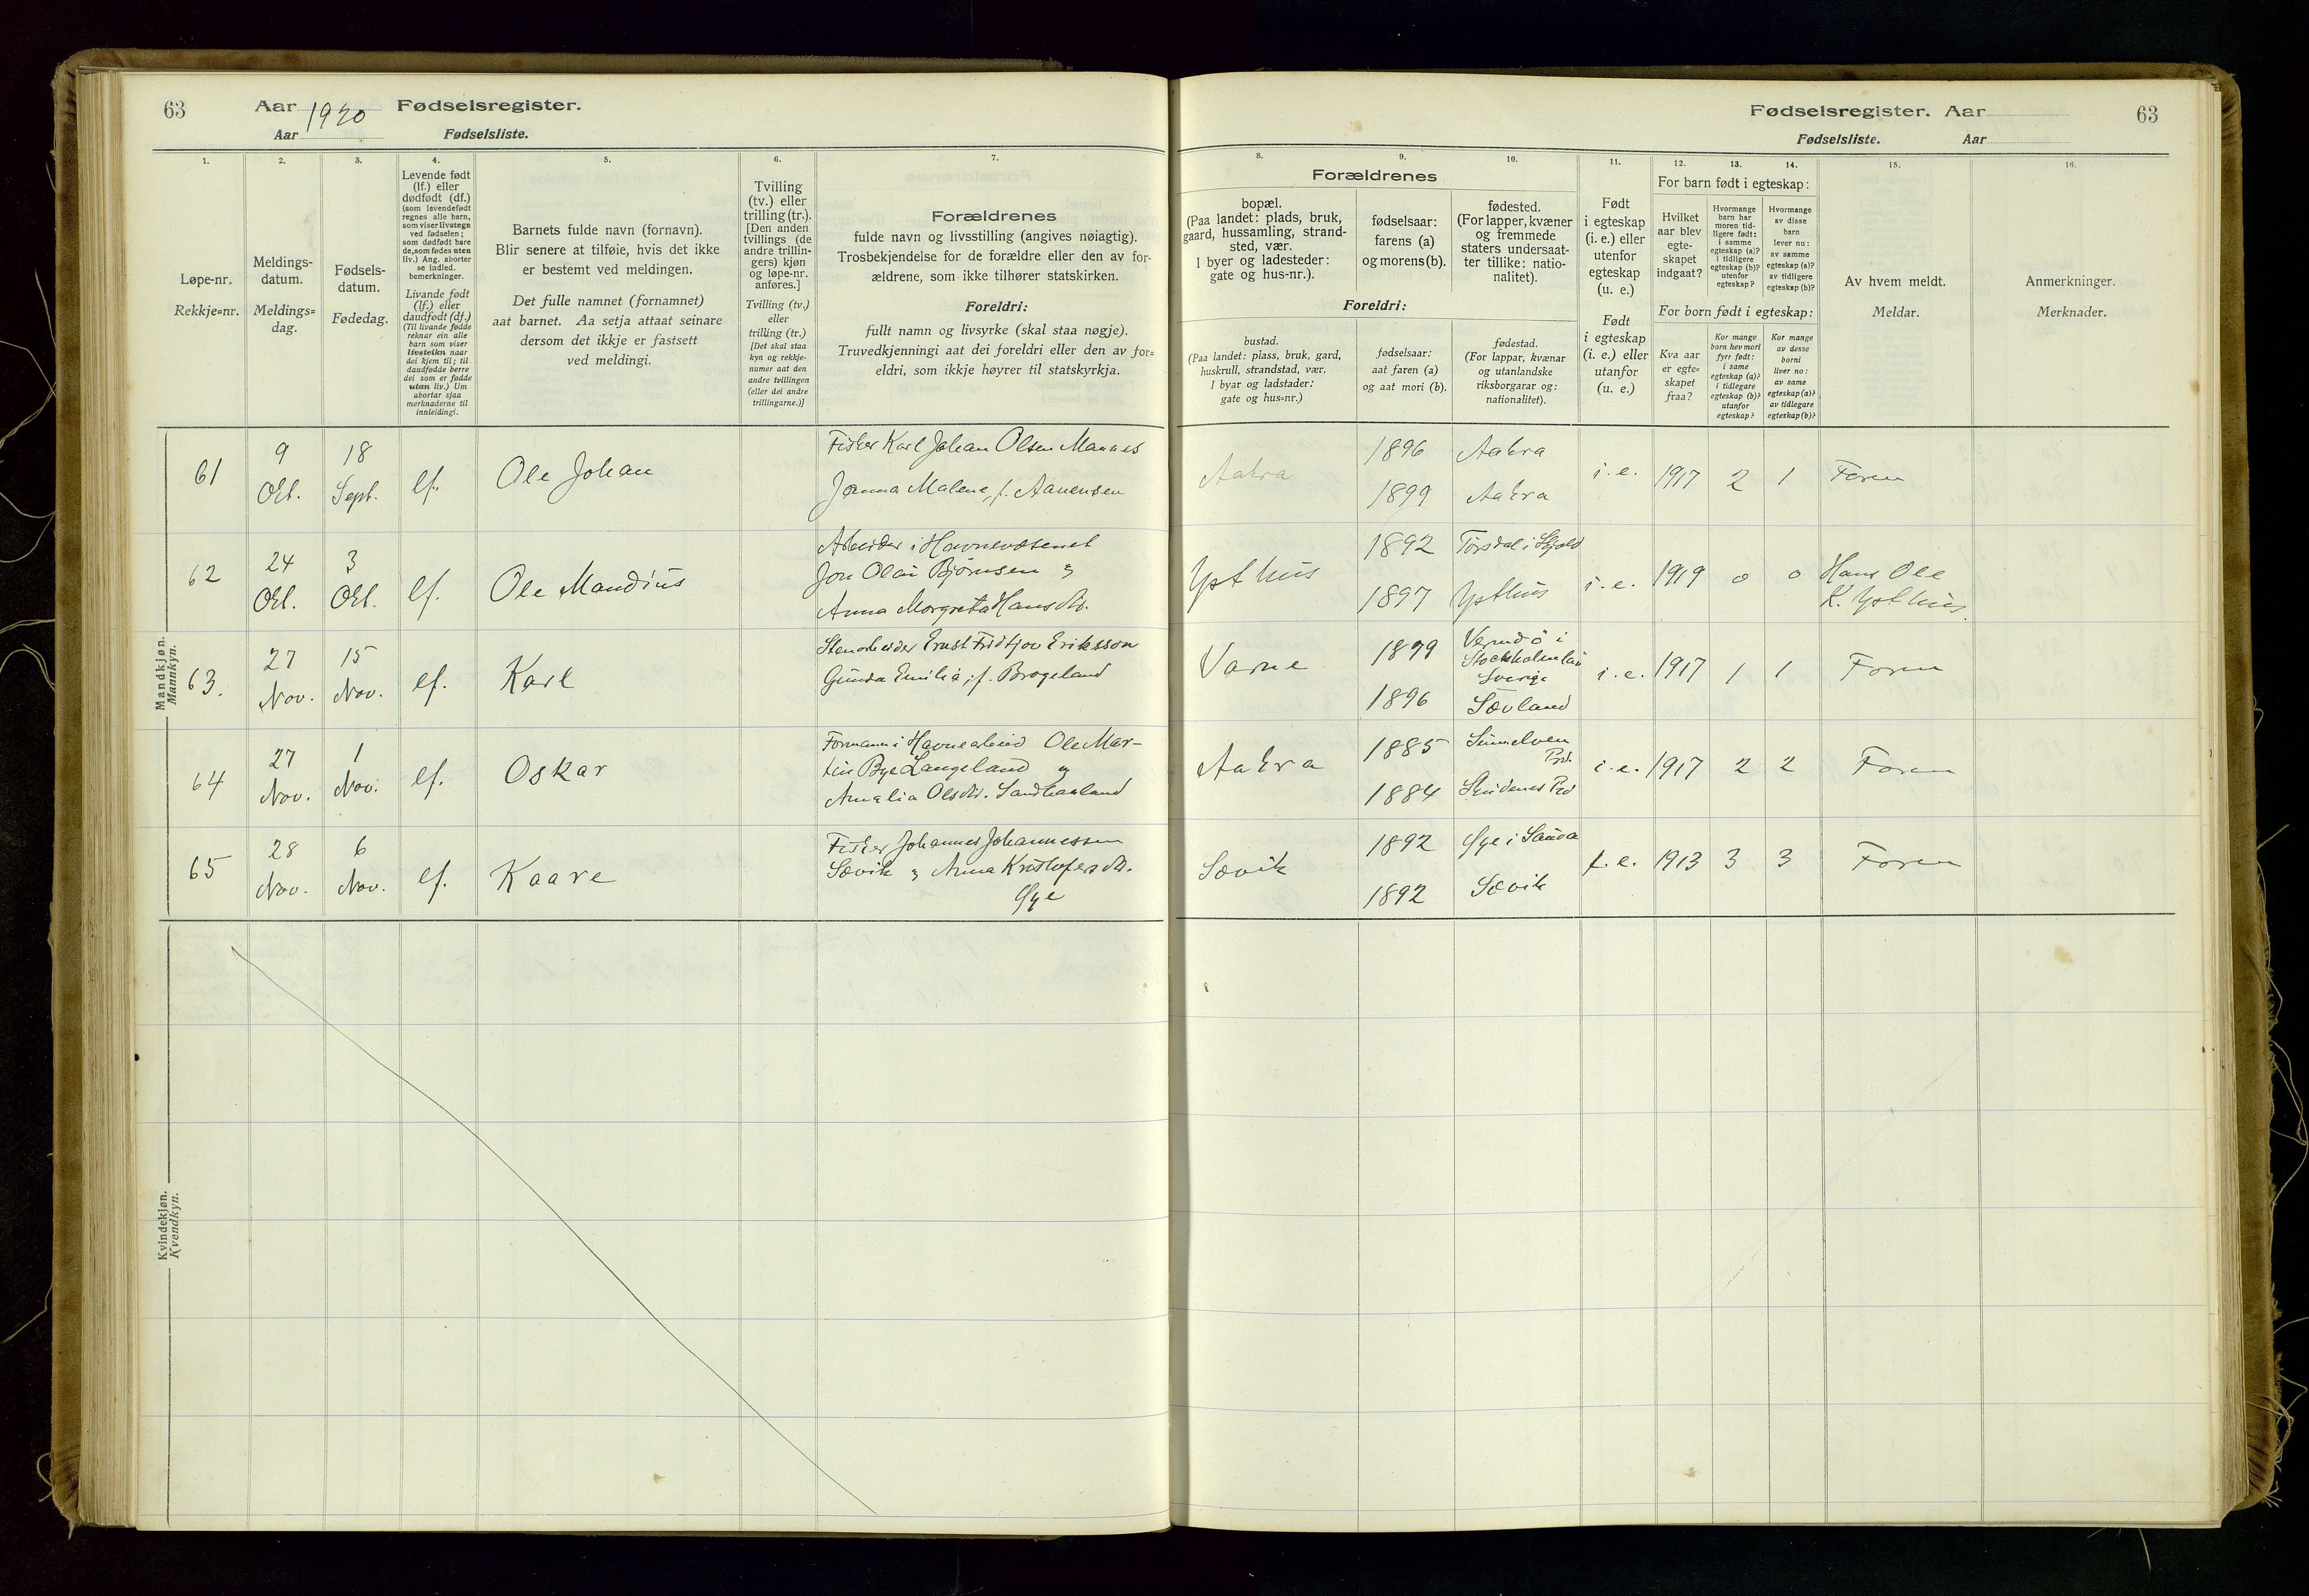 63 Aar 1920 Fødselsregister.
Aar Fødselsliste.
1. 2. 3. 4. 5. 6. 7.
Løpe-nr.
Rekkje=nr.
Meldings-
datum.
Meldings=
dag.
Fødsels-
datum.
Fødedag.
Levende født
(lf.) eller
dødfødt (df.)
(som levendefødt
regnes alle barn,
som viser livstegn
ved fødselen;
som dødfødt bare
de, som fødes uten
liv.) Ang. aborter
se indled.
bemerkninger.
Livande født
(lf.) eller
daudfødt (df.)
(Til livande fødde
reknar ein alle
barn som viser
livsteikn naar
dei kjem til; til
daudfødde berre
dei som er fødde
utan liv.) Um
abortar sjaa
merknaderne til
innleidingi.
Barnets fulde navn (fornavn).
Blir senere at tilføie, hvis det ikke
er bestemt ved meldingen.
Det fulle namnet (fornamnet)
aat barnet. Aa setja attaat seinare
dersom det ikkje er fastsett
ved meldingi.
Tvilling
(tv.) eller
trilling (tr.).
[Den anden
tvillings (de
andre trillin-
gers) kjøn
og løpe-nr.
anføres.]
Tvilling (tv.)
eller
trilling (tr.)
[Det skal staa
kyn og rekkje-
numer aat den
andre tvillingen
(eller dei andre
trillingarne.)]
Forældrenes
fulde navn og livsstilling (angives nøiagtig).
Trosbekjendelse for de forældre eller den av for-
ældrene, som ikke tilhører statskirken.
Foreldri:
fullt namn og livsyrke (skal staa nøgje).
Truvedkjenningi aat dei foreldri eller den av for=
eldri, som ikkje høyrer til statskyrkja.
Mandkjøn.
Mannkyn.
61
9
Okt.
18
Sept.
lf.
Ole Johan
Fisker Karl Johan Olsen Mannes
Janna Malene, f. Aanensen
62
24
Okt.
3
Okt.
lf.
Ole Mandius
Arbeider i Havnevæsenet
Jon Olai Bjørnsen og
Anna Morgreta Hansdtr.
63.
27
Nov.
15
Nov.
lf.
Karl
Stenarbeider Ernst Fridtjov Eriksson
Gunda Emilia, f. Brogeland
64
27
Nov.
1
Nov.
lf.
Oskar
Formann i Havnearbeid Ole Mar-
tin Bye Langeland og
Amalia Olsdtr. Sandhaaland
65
28
Nov.
6
Nov.
lf.
Kaare
Fisker Johannes Johannessen
Sævik og Anna Kristofersdtr.
Øye
Kvindekjøn.
Kvendkyn.
Fødselsregister. Aar 63
Fødselsliste. Aar
8. 9. 10. 11. 12. 13. 14. 15. 16.
Forældrenes
bopæl.
(Paa landet: plads, bruk,
gaard, hussamling, strand-
sted, vær.
I byer og ladesteder:
gate og hus-nr.).
fødselsaar:
farens (a)
og morens (b).
fødested.
(For lapper, kvæner
og fremmede
staters undersaat-
ter tillike: natio-
nalitet).
Foreldri:
bustad.
(Paa landet: plass, bruk, gard,
huskrull, strandstad, vær.
I byar og ladstader:
gate og hus=nr.)
fødselsaar:
aat faren (a)
og aat mori (b).
fødestad.
(For lappar, kvænar
og utanlandske
riksborgarar og:
nationalitet).
Født
i egteskap
(i. e.) eller
utenfor
egteskap
(u. e.)
Født
i egteskap
(i. e.) eller
utanfor
(u. e.)
For barn født i egteskap:
Hvilket
aar blev
egte-
skapet
indgaat?
Hvormange
barn har
moren tid-
ligere født:
i samme
egteskap (a)?
i tidligere
egteskap (b)?
utenfor
egteskap?
Hvormange
av disse
barn
lever nu:
av samme
egteskap (a)?
av tidligere
egteskap (b)?
For born født i egteskap:
Kva aar
er egte=
skapet
fraa?
Kor mange
born hev mori
fyrr født:
i same
egteskap (a)?
i tidlegare
egteskap (b)?
utanfor
egteskap?
Kor mange
av desse
borni
liver no:
av same
egteskap (a)?
av tidlegare
egteskap (b)?
Av hvem meldt.
Meldar.
Anmerkninger.
Merknader.
Aakra
1896
1899
Aakra
Aakra
i. e. 1917 2 1 Faren
Ysthus
1892
1897
Torsdal i Skjold
Ysthus
i. e. 1919 0 0 Hans Ole
K. Ysthus.
Varne
1899
1896
Vermdö i
Stockholms län
Sverige
Sævland
i. e. 1917 1 1 Faren
Aakra
1885
1884
Prd.
Skudenes Prd
i. e. 1917 2 2 Faren
Sævik
1892
1892
Øye i Sauda
Sævik
i. e. 1913 3 3 Faren